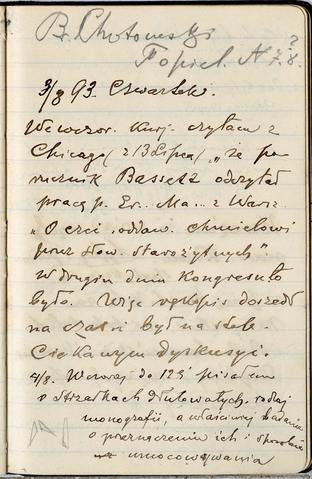 B. Chotomski
Topiel. N 7. 8. ?
3/8 93. Czwartek.
We wczor. Kurj. czytam z
Chicago (z 13 Lipca) „że po
rucznik Bassetz odczytał
pracę p. Er. Ma... z Warsz.
„O czci oddaw. chmielowi
przez Słow. starożytnych"
W drugim dniu Kongresu to
było. Więc rękopis doszedł
na czas i był na stole.
Ciekawym dyskusyi.
4/8. Wczoraj do 12 5' pisałem
o strzałkach dłutowatych, rodzaj
monografii, a właściwiej badania
o przeznaczeniu ich i sposobie
umocowywania